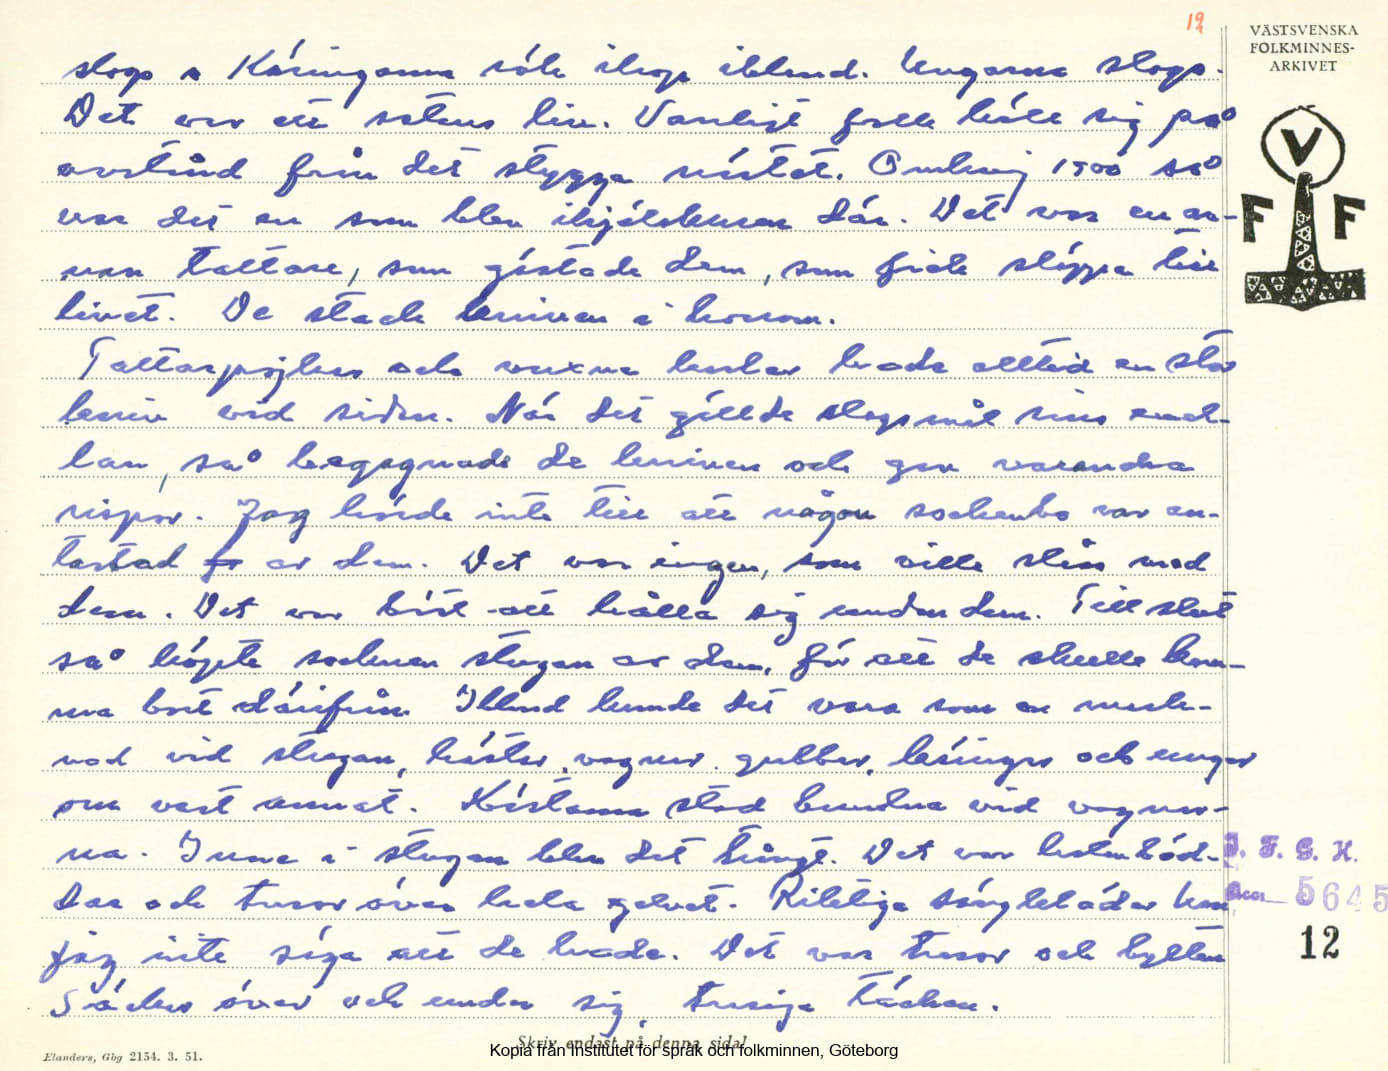 19
VÄSTSVENSKA
FOLKMINNES-
ARKIVET
V
F F
slogs o Käringarna rök ihop ibland. Ungarna slogs.
Det var ett satans liv. Vanligt folk höll sig på
avstånd från det stygga nästet. Omkring 1900 så
var det en som blev ihjälskuren där. Det var en an-
nan tattare, som gästade dem, som fick släppa till
livet. De stack kniven i honom.
Tattarpojkar och vuxna karlar hade alltid en stor
kniv vid sidan. När det gällde slagsmål sins emel-
lan, så begagnade de kniven och gav varandra
rispor. Jag hörde inte till att någon sockenbo var an-
tastad av dem. Det var ingen, som ville slåss med
dem. Det var bäst att hålla sig undan dem. Till slut
så köpte socknen stugan av dem, för att de skulle kom-
ma bort därifrån. Ibland kunde det vara som en mark-
nad vid stugan, hästar, vagnar, gubbar, käringar och ungar
om vart annat. Hästarna stod bundna vid vagnar-
na. Inne i stugan blev det trångt. Det var halmbäd-
dar och trasor över hela golvet. Riktiga sängkläder kan
jag inte säga att de hade. Det var trasor och bylten
Säckar över och under sig, trasiga täcken.
I. F. G. H.
Acc. 5645
12
Skriv endast på denna sida!
Elanders, Gbg 2154. 3. 51.
Kopia från Institutet för språk och folkminnen, Göteborg